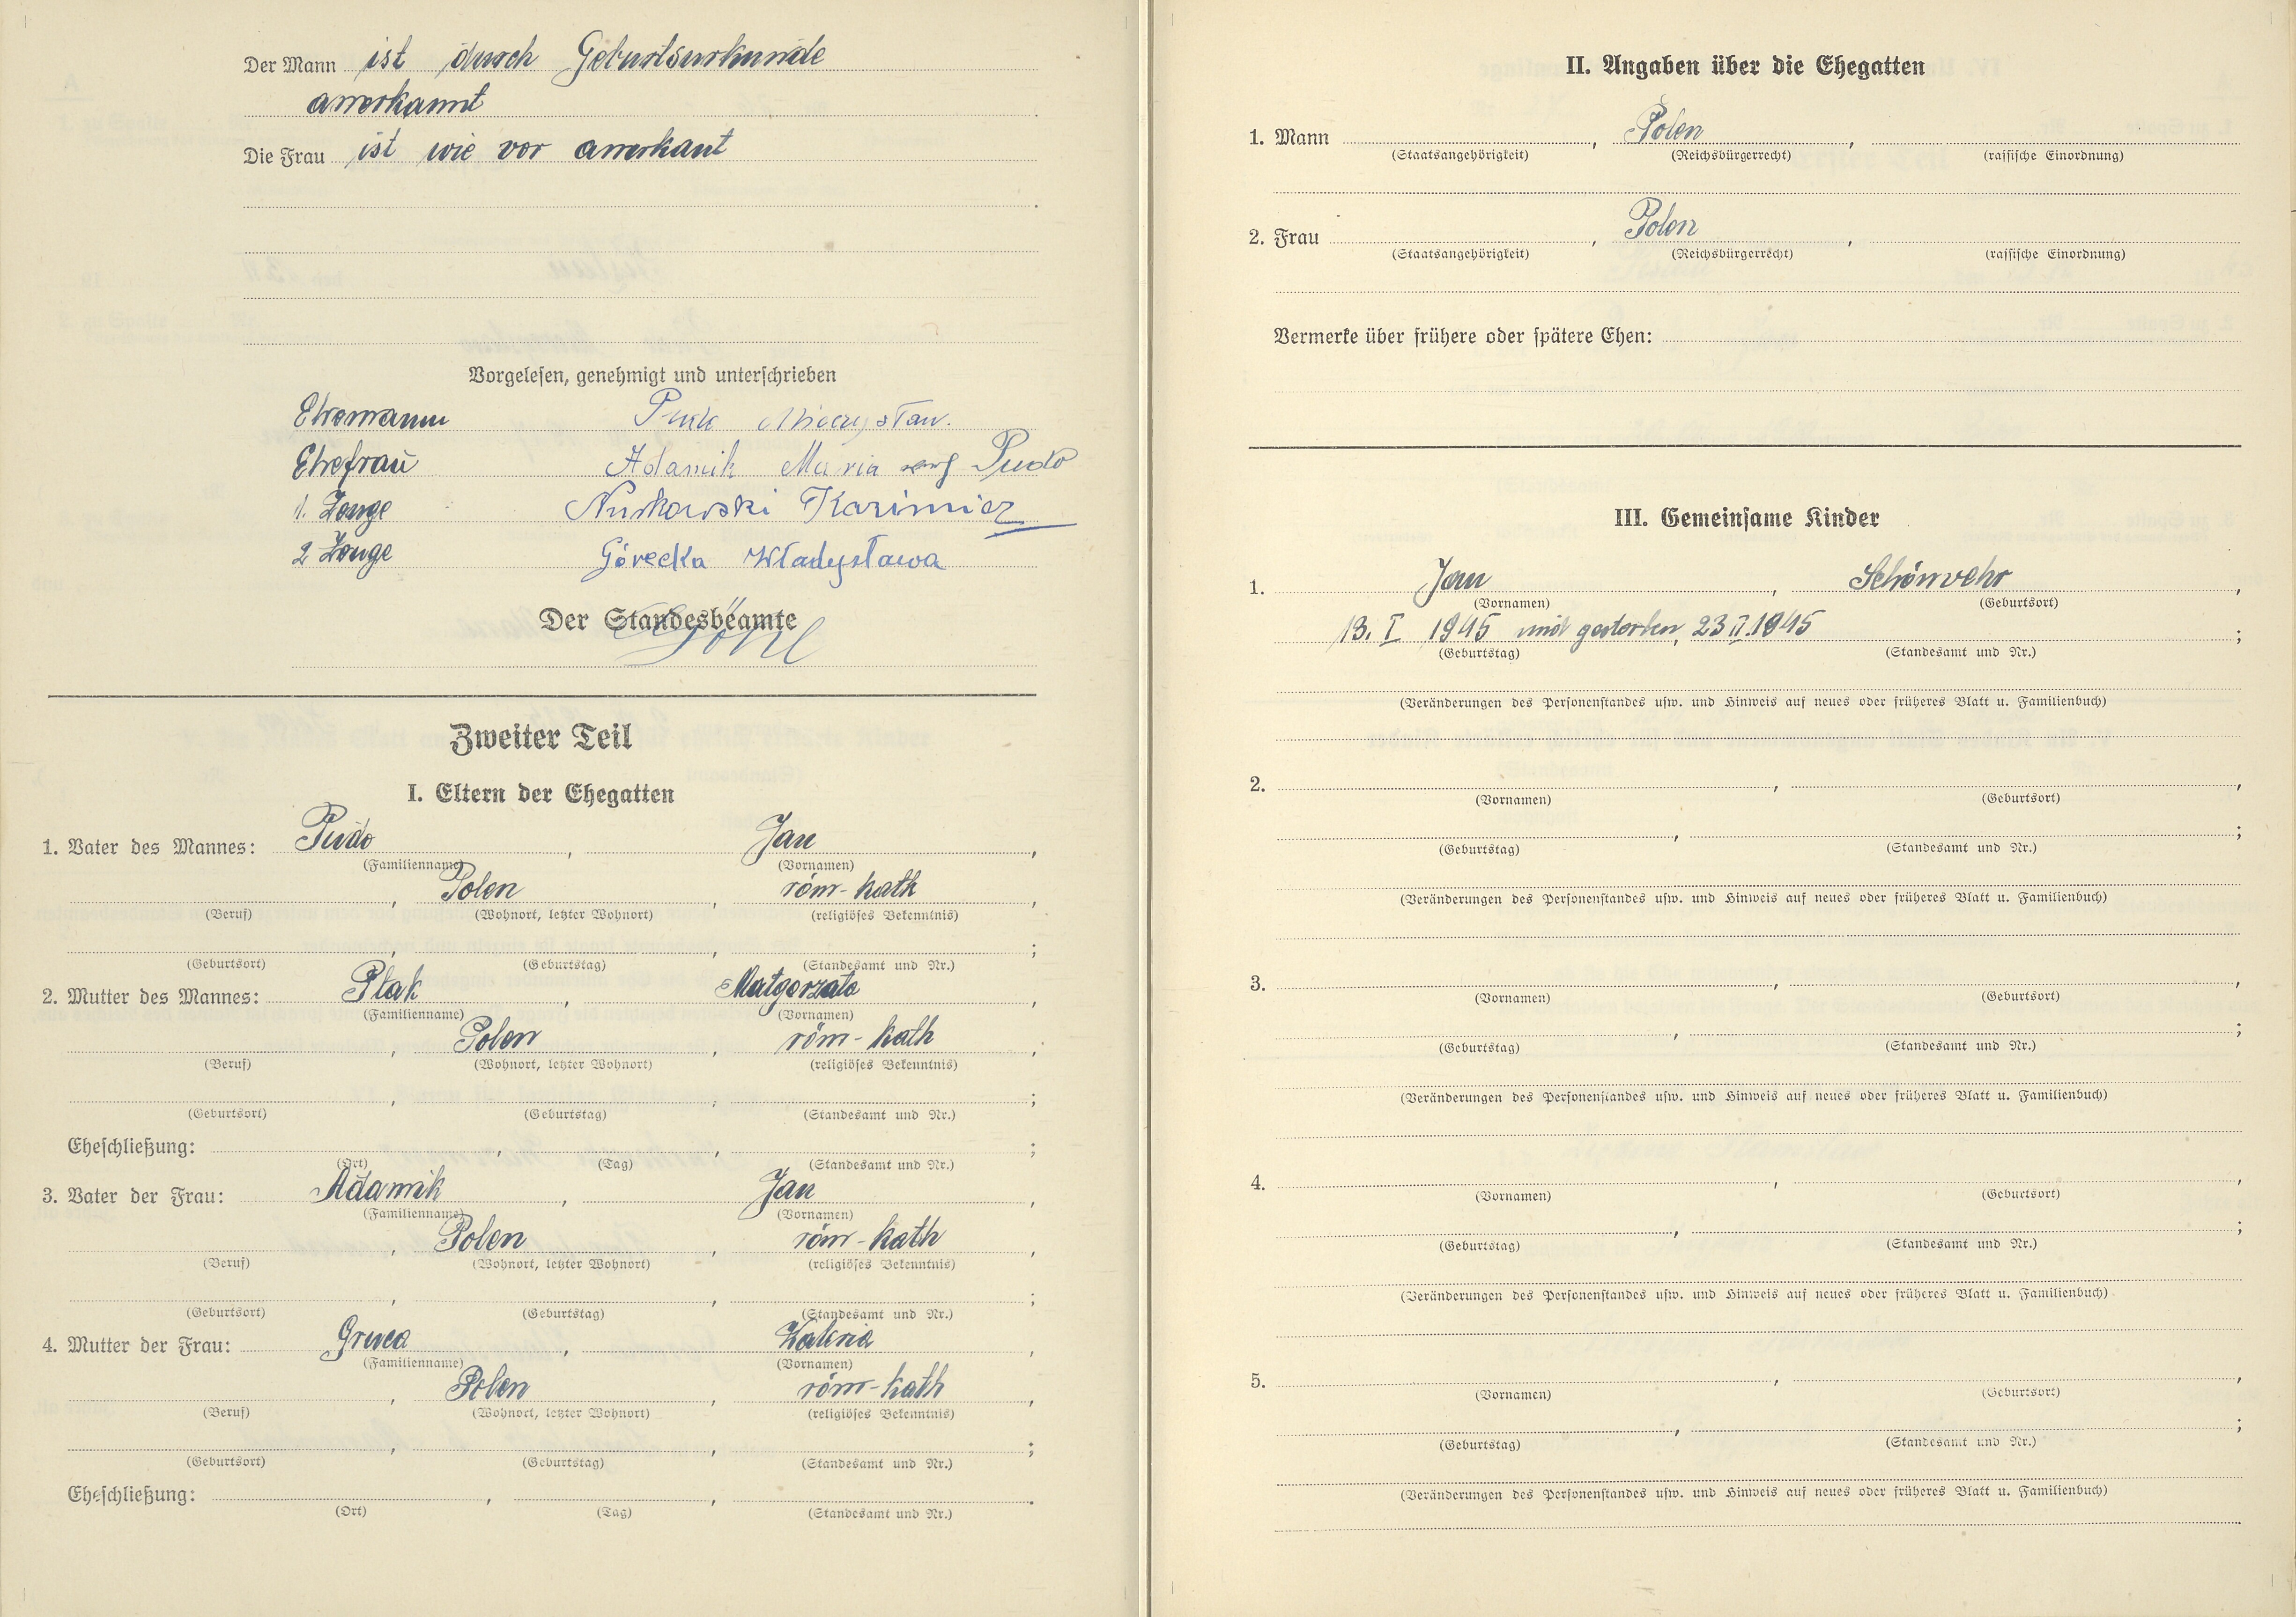 Der Mann ist durch Geburtsurkunde
anerkannt
Die Frau ist wie vor anerkant
Vorgelesen, genehmigt und unterschrieben
Ehemann Mieczysław.
Ehefrau Adamik Maria Pudo
1. Zeuge Nurkowski Kazimierz
2 Zeuge Górecka Władysława
Der Standesbeamte
Zweiter Teil
I. Eltern der Ehegatten
1. Vater des Mannes: Pudo, Jan,
(Familienname) (Vornamen)
, Polen, röm-kath,
(Beruf) (Wohnort, letzter Wohnort) (religiöses Bekenntnis)
, , ;
(Geburtsort) (Geburtstag) (Standesamt und Nr.)
2. Mutter des Mannes: Ptak, Małgorzata,
(Familienname) (Vornamen)
, Polen, röm-kath,
(Beruf) (Wohnort, letzter Wohnort) (religiöses Bekenntnis)
, , ;
(Geburtsort) (Geburtstag) (Standesamt und Nr.)
Eheschließung: , , ;
(Ort) (Tag) (Standesamt und Nr.)
3. Vater der Frau: Adamik, Jan,
(Familienname) (Vornamen)
, Polen, röm-kath,
(Beruf) (Wohnort, letzter Wohnort) (religiöses Bekenntnis)
, , ;
(Geburtsort) (Geburtstag) (Standesamt und Nr.)
4. Mutter der Frau: Gruca, Waleria,
(Familienname) (Vornamen)
, Polen, röm-kath,
(Beruf) (Wohnort, letzter Wohnort) (religiöses Bekenntnis)
, , ;
(Geburtsort) (Geburtstag) (Standesamt und Nr.)
Eheschließung: , , .
(Ort) (Tag) (Standesamt und Nr.)
II. Angaben über die Ehegatten
1. Mann , Polen,
(Staatsangehörigkeit) (Reichsbürgerrecht) (rassische Einordnung)
2. Frau , Polen,
(Staatsangehörigkeit) (Reichsbürgerrecht) (rassische Einordnung)
Vermerke über frühere oder spätere Ehen:
III. Gemeinsame Kinder
1. Jan, Schönwehr,
(Vornamen) (Geburtsort)
13. I 1945 und gestorben, 23 II. 1945;
(Geburtstag) (Standesamt und Nr.)
(Veränderungen des Personenstandes usw. und Hinweis auf neues oder früheres Blatt u. Familienbuch)
2. , ,
(Vornamen) (Geburtsort)
, ;
(Geburtstag) (Standesamt und Nr.)
(Veränderungen des Personenstandes usw. und Hinweis auf neues oder früheres Blatt u. Familienbuch)
3. , ,
(Vornamen) (Geburtsort)
, ;
(Geburtstag) (Standesamt und Nr.)
(Veränderungen des Personenstandes usw. und Hinweis auf neues oder früheres Blatt u. Familienbuch)
4. , ,
(Vornamen) (Geburtsort)
, ;
(Geburtstag) (Standesamt und Nr.)
(Veränderungen des Personenstandes usw. und Hinweis auf neues oder früheres Blatt u. Familienbuch)
5. , ,
(Vornamen) (Geburtsort)
, ;
(Geburtstag) (Standesamt und Nr.)
(Veränderungen des Personenstandes usw. und Hinweis auf neues oder früheres Blatt u. Familienbuch)